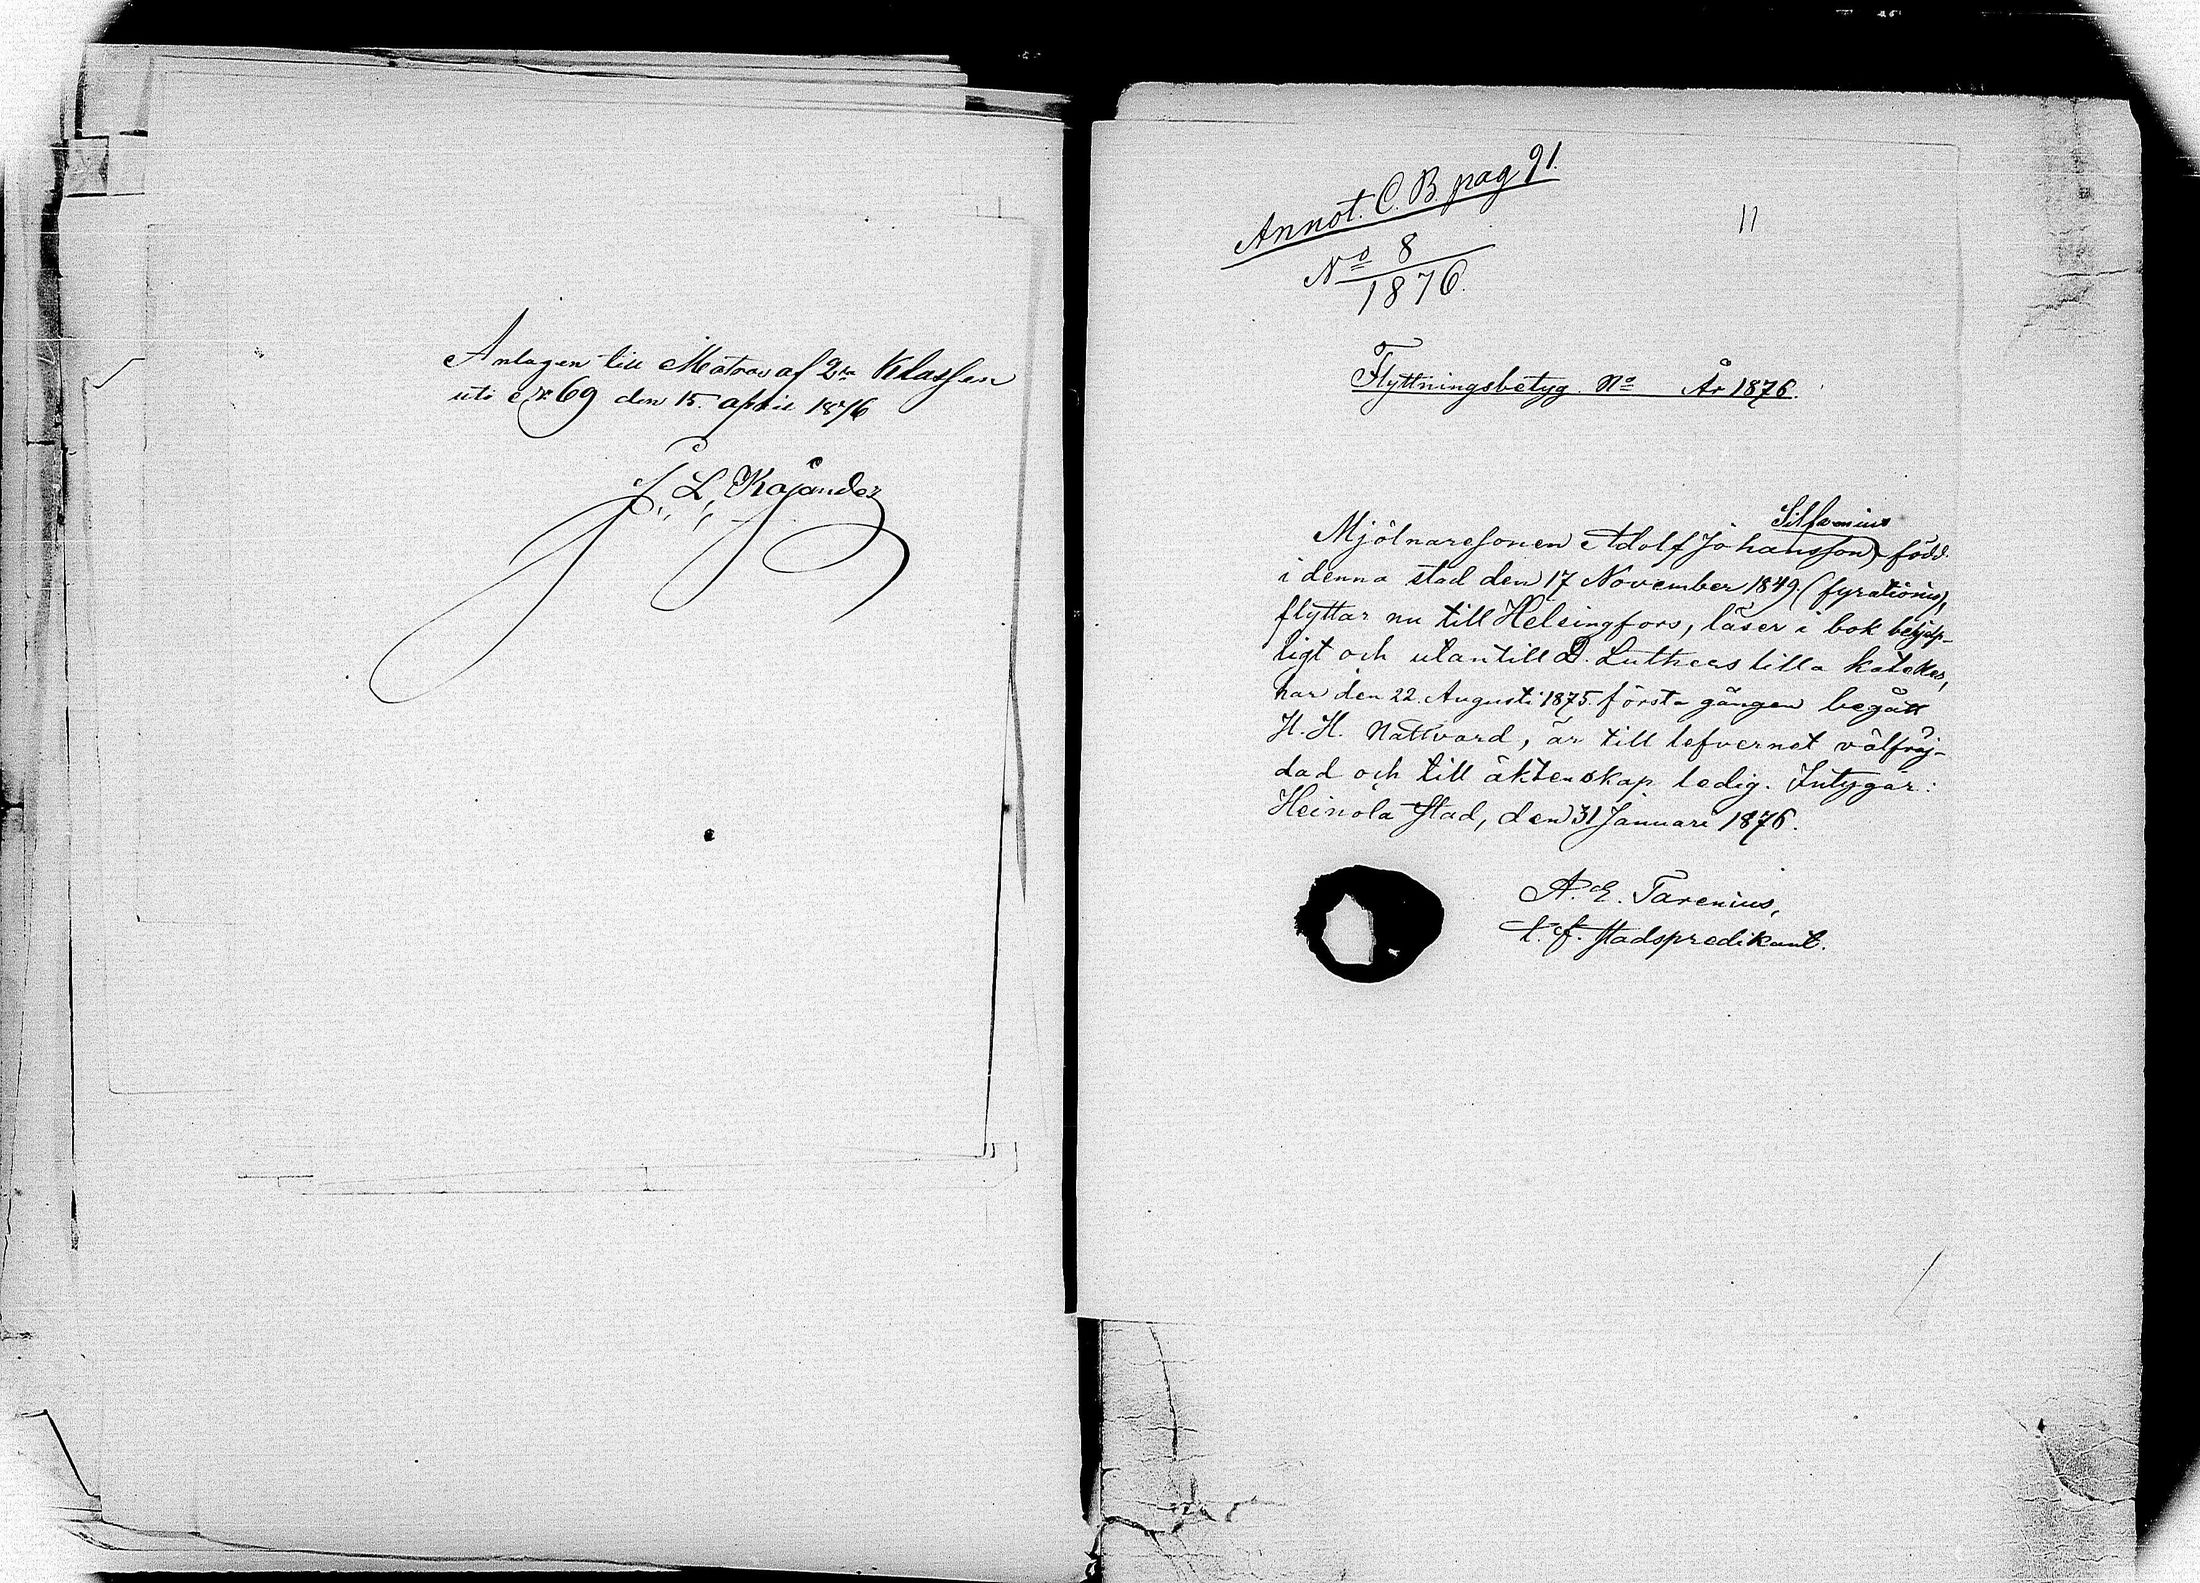 Antagen till Matros af 2ra Klassen
uti No 69 den 15 april 1876
J. L. Kajander
Annot. C. B. pag 91.
11
No 8
1876.
Flyttningsbetyg No År 1876.
Silfvenius
Mjölnaresonen Adolf Johansson, född
i denna stad den 17 November 1849 (fyrationio),
flyttar nu till Helsingfors, läser i bok behjelp-
ligt och utantill D. Luthers lilla kateches,
har den 22 Augusti 1875 första gången begått
H. H. Nattvard, är till lefvernet välfräj-
dad och till äktenskap ledig. Intygar:
Heinola Stad, den 31 Januari 1876.
A. E. Tarenius,
t. f. Stadspredikant.